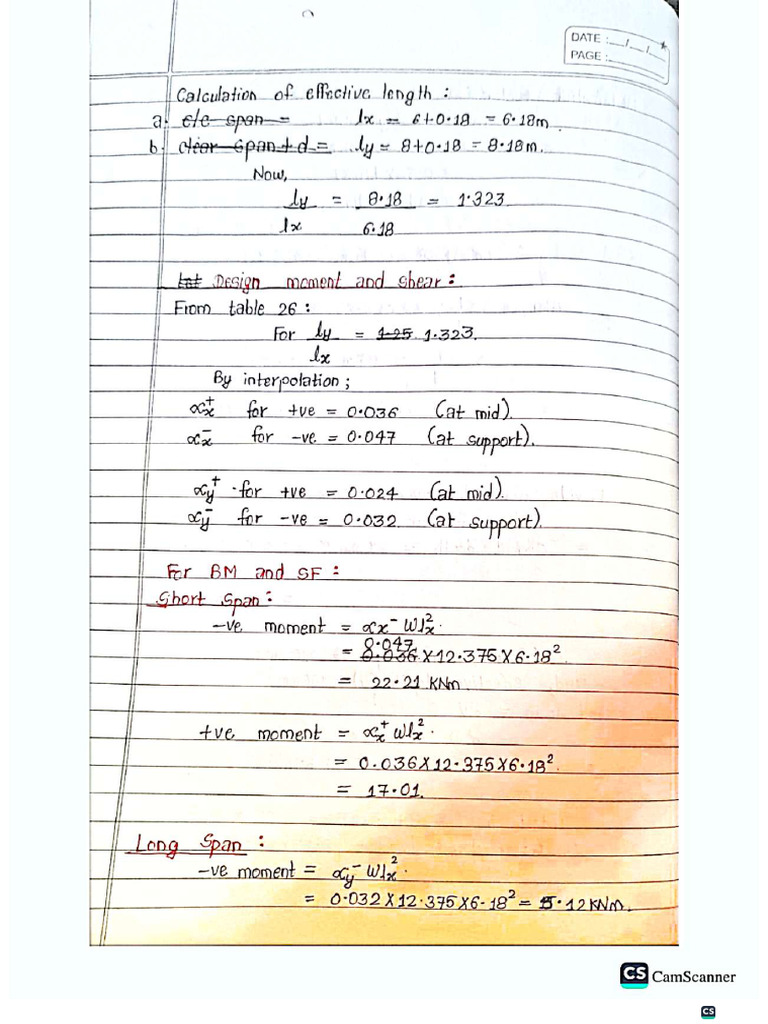 DATE :__/__/__
PAGE :
Calculation of effective length :
a. c/c span = lx = 6+0.18 = 6.18m.
b. clear span + d = ly = 8+0.18 = 8.18m.
Now,
ly = 8.18 = 1.323
lx 6.18
Int Design moment and shear :
From table 26 :
For ly = 1.25 1.323.
lx
By interpolation ;
αx⁺ for +ve = 0.036 (at mid).
αx⁻ for -ve = 0.047 (at support).
αy⁺ for +ve = 0.024 (at mid).
αy⁻ for -ve = 0.032 (at support).
For BM and SF :
Short Span :
-ve moment = αx⁻ Wlx².
0.047
= 0.036 X 12.375 X 6.18²
= 22.21 KNm
+ve moment = αx⁺ Wlx².
= 0.036 X 12.375 X 6.18²
= 17.01.
Long Span :
-ve moment = αy⁻ Wlx².
= 0.032 X 12.375 X 6.18² = 15.12 KNm.
CS CamScanner
CS